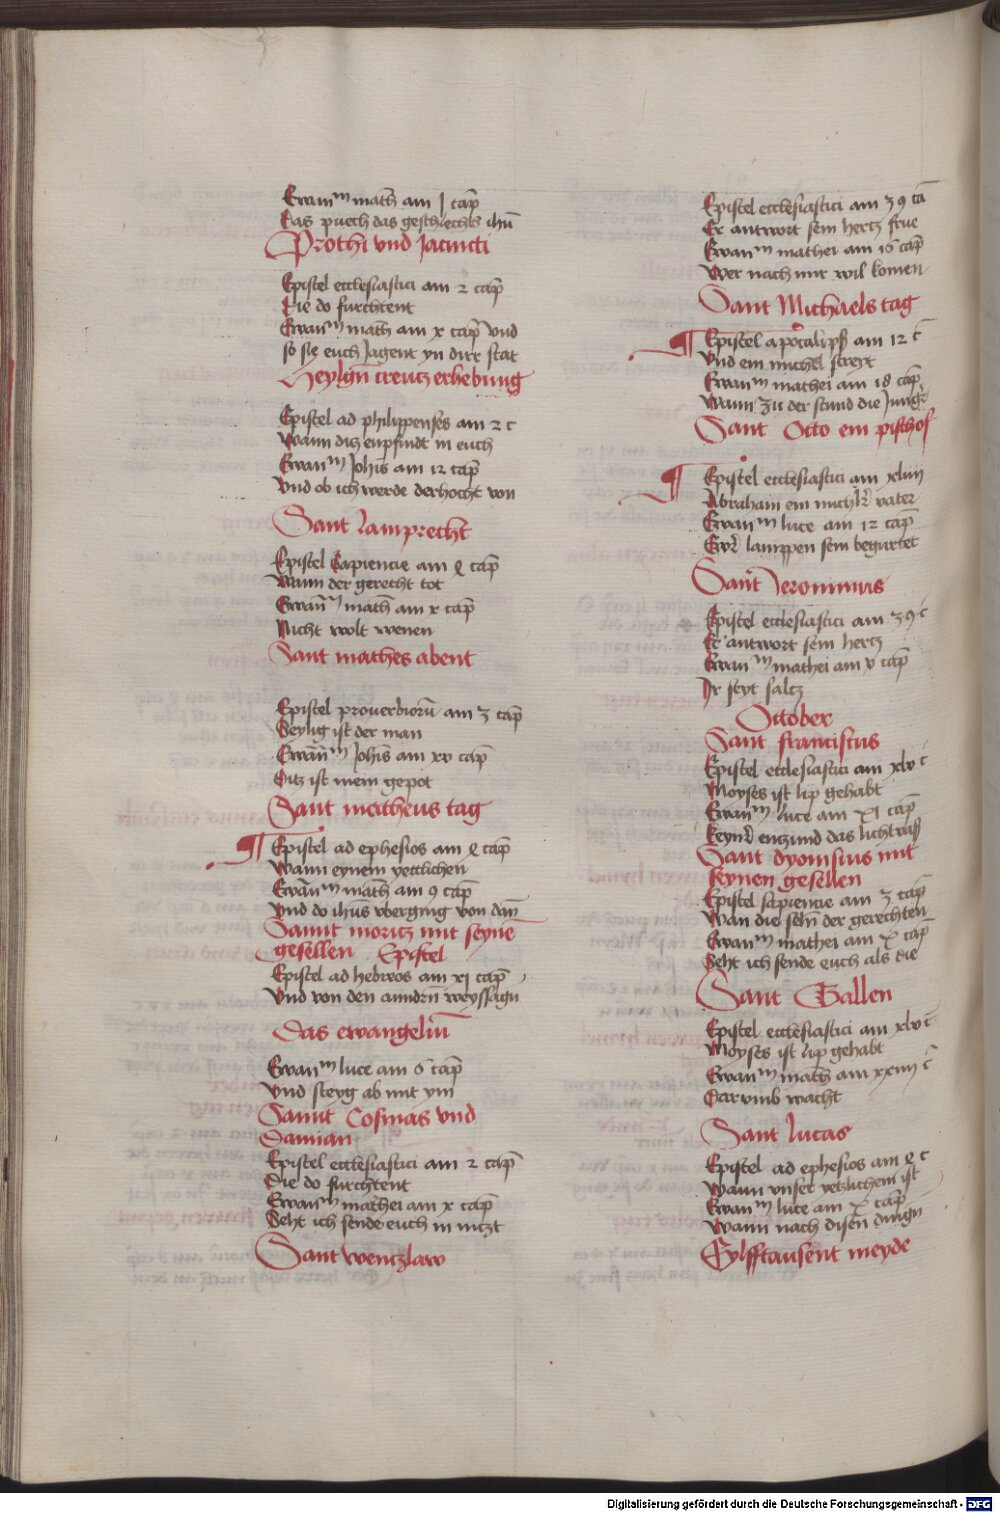 Ewanm math am j cap
Das puech das geschlechts ihu
Prothi vnd Jacincti
Epistel ecclesiastici am 2 cap
Die do furchtent
Ewanm math am x cap vnd
so sie euch Jagent yn dirr stat
Heylgn creutz erhebung
Epistel ad philippenses am 2 c
Wann ditz enpfindt in euch
Ewanm Johis am 12 cap
Vnd ob ich werde derhocht von
Sant lamprecht
Epistel Sapiencie am 4 cap
Wann der gerecht tot
Ewan math am x cap
Nicht wolt wenen
Sant mathes abent
Epistel prouerbioru am 3 cap
Seylig ist der man
Ewanm Johis am xv cap
Ditz ist mein gepot
Sant matheus tag
¶ Epistel ad ephesios am 4 cap
Wann eynem yettlichen
Ewanm math am 9 cap
Vnd do ihus vberging von dan
Sannt moritz mit seyne
gesellen Epistel
Epistel ad hebreos am xj cap
Vnd von den anndrn weyssagn
Das ewangeliu
Ewanm luce am 6 cap
Vnd steyg ab mit ym
Sannt Cosmas vnd
Damian
Epistel ecclesiastici am 2 cap
Die do furchtent
Ewanm mathei am x cap
Seht ich sende euch in mitzt
Sant wentzlaw
Epistel ecclesiastici am 39 ca
Er antwort sein hertz frue
Ewanm mathei am 16 cap
Wer nach mir wil komen
Sant Michaels tag
¶ Epistel apocalips am 12 c
Vnd ein michel streyt
Ewanm mathei am 18 cap
Wann zu der stund die Junger
Sant Otto ein pischof
¶ Epistel ecclesiastici am xliiij
Abraham ein michlr vater
Ewanm luce am 12 cap
Ewr lamppen sein begurtet
Sant Jeronimus
Epistel ecclesiastici am 39 c
Er antwort sein hertz
Ewanm mathei am v cap
Ir seyt saltz
October
Sant franciscus
Epistel ecclesiastici am xlv c
Moyses ist lip gehabt
Ewanm luce am XI cap
Keynr enzund das lichtvass
Sant dyonisius mit
seynen gesellen
Epistel sapiencie am 3 cap
Wan die seln der gerechten
Ewanm mathei am X cap
Seht ich sende euch als die
Sant Gallen
Epistel ecclesiastici am xlv c
Moyses ist lip gehabt
Ewanm math am xxiiij c
Darumb wacht
Sant lucas
Epistel ad ephesios am 4 c
Wann vnser yetzlichem ist
Ewanm luce am X cap
Wann nach disen dingn
Eylfftausent meyde
Digitalisierung gefördert durch die Deutsche Forschungsgemeinschaft - DFG